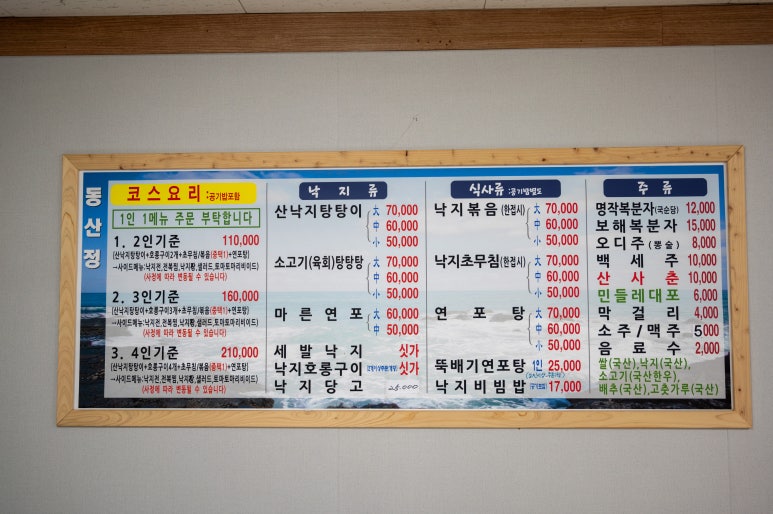 동산정
코스요리 :공기밥포함
1인 1메뉴 주문 부탁합니다
1. 2인기준 110,000
(산낙지탕탕이+호롱구이2개+초무침/볶음(중택1)+연포탕)
→사이드메뉴:낙지전,전복찜,낙지황,샐러드,토마토마리비이드)
(사정에 따라 변동될 수 있습니다)
2. 3인기준 160,000
(산낙지탕탕이+호롱구이3개+초무침/볶음(중택1)+연포탕)
→사이드메뉴:낙지전,전복찜,낙지황,샐러드,토마토마리비이드)
(사정에 따라 변동될 수 있습니다)
3. 4인기준 210,000
(산낙지탕탕이+호롱구이4개+초무침/볶음(중택1)+연포탕)
→사이드메뉴:낙지전,전복찜,낙지황,샐러드,토마토마리비이드)
(사정에 따라 변동될 수 있습니다)
낙지류
산낙지탕탕이 大 70,000
中 60,000
小 50,000
소고기(육회)탕탕탕 大 70,000
中 60,000
小 50,000
마른연포 中 60,000
小 50,000
세발낙지 싯가
낙지호롱구이 싯가
낙지당고 25,000
식사류 :공기밥별도
낙지볶음(한접시) 大 70,000
中 60,000
小 50,000
낙지초무침(한접시) 大 70,000
中 60,000
小 50,000
연포탕 大 70,000
中 60,000
小 50,000
뚝배기연포탕 1인 25,000
낙지비빔밥 17,000
주류
명작복분자(국순당) 12,000
보해복분자 15,000
오디주(뽕술) 8,000
백세주 10,000
산사춘 10,000
민들레대포 6,000
막걸리 4,000
소주/맥주 5000
음료수 2,000
쌀(국산),낙지(국산),
소고기(국산한우),
배추(국산),고춧가루(국산)